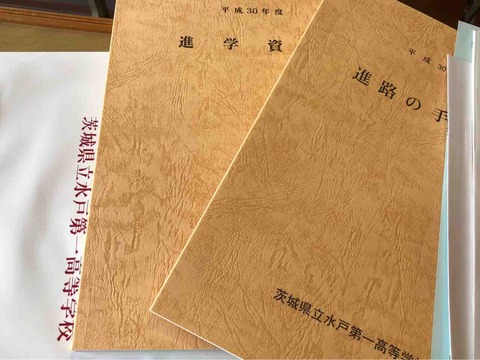 平成30年度
進学資
平成30
進路の手
茨城県立水戸第一高等学
茨城県立水戸第一高等学校